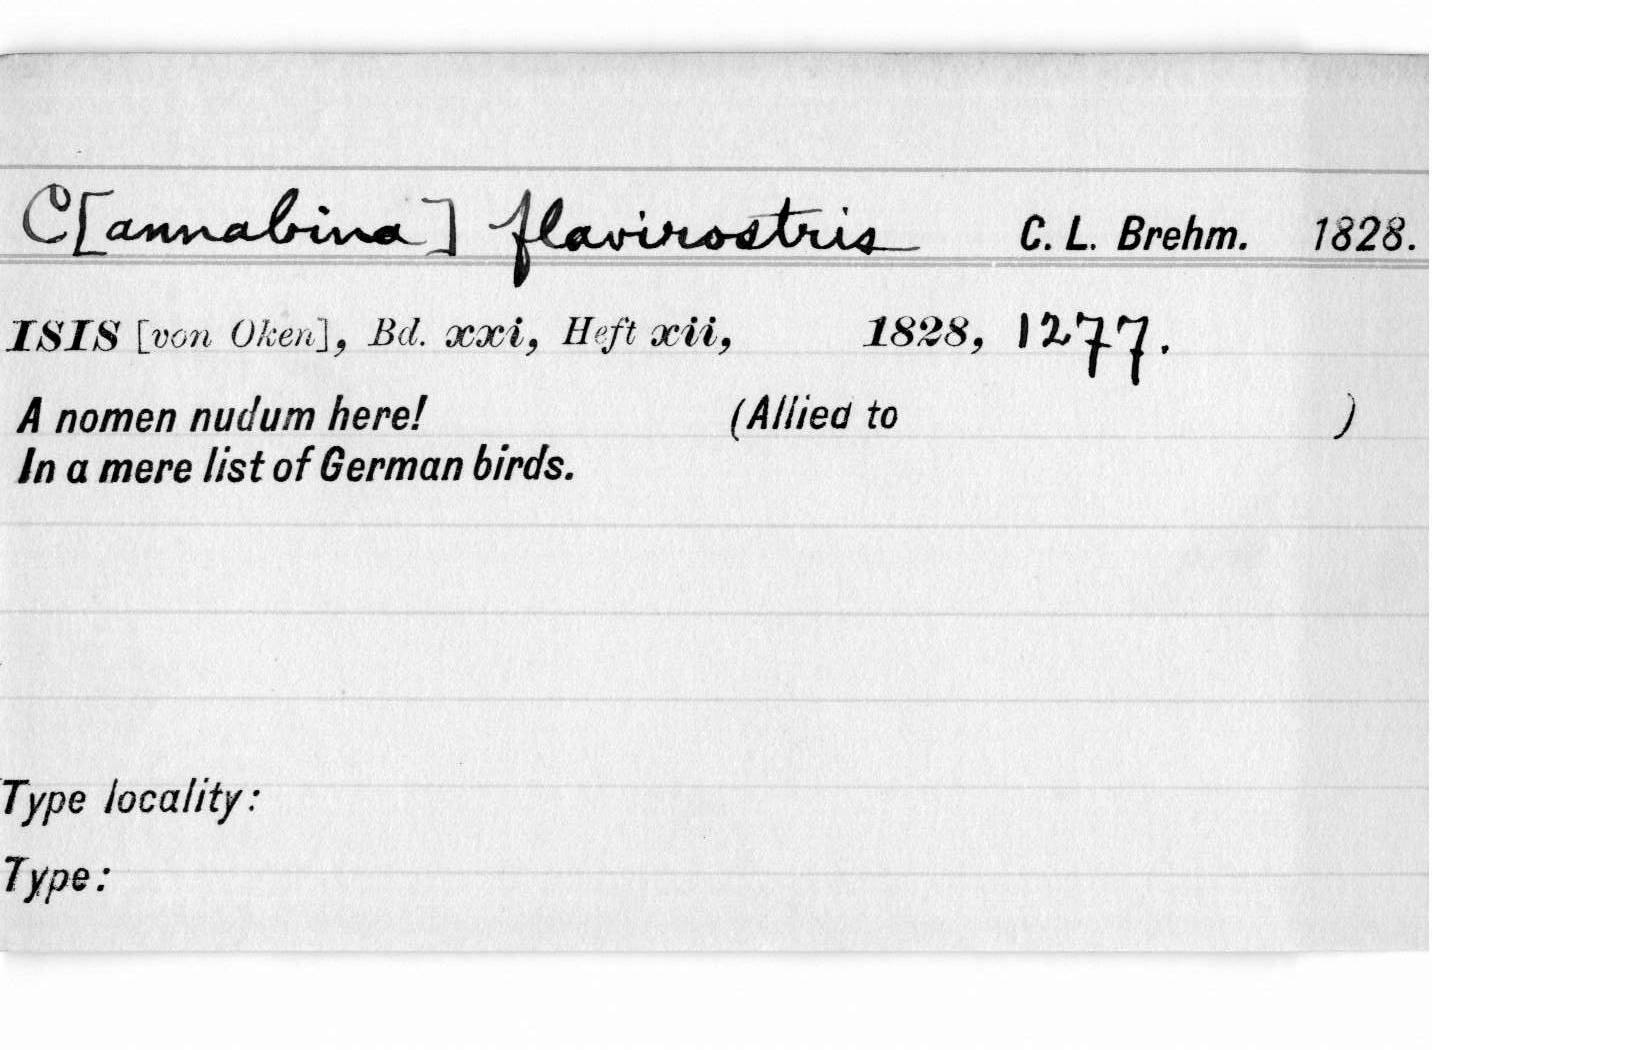 C[annabina] flavirostris C. L. Brehm. 1828.
ISIS [von Oken], Bd. xxi, Heft xii, 1828, 1277.
A nomen nudum here! (Allied to )
In a mere list of German birds.
Type locality:
Type: